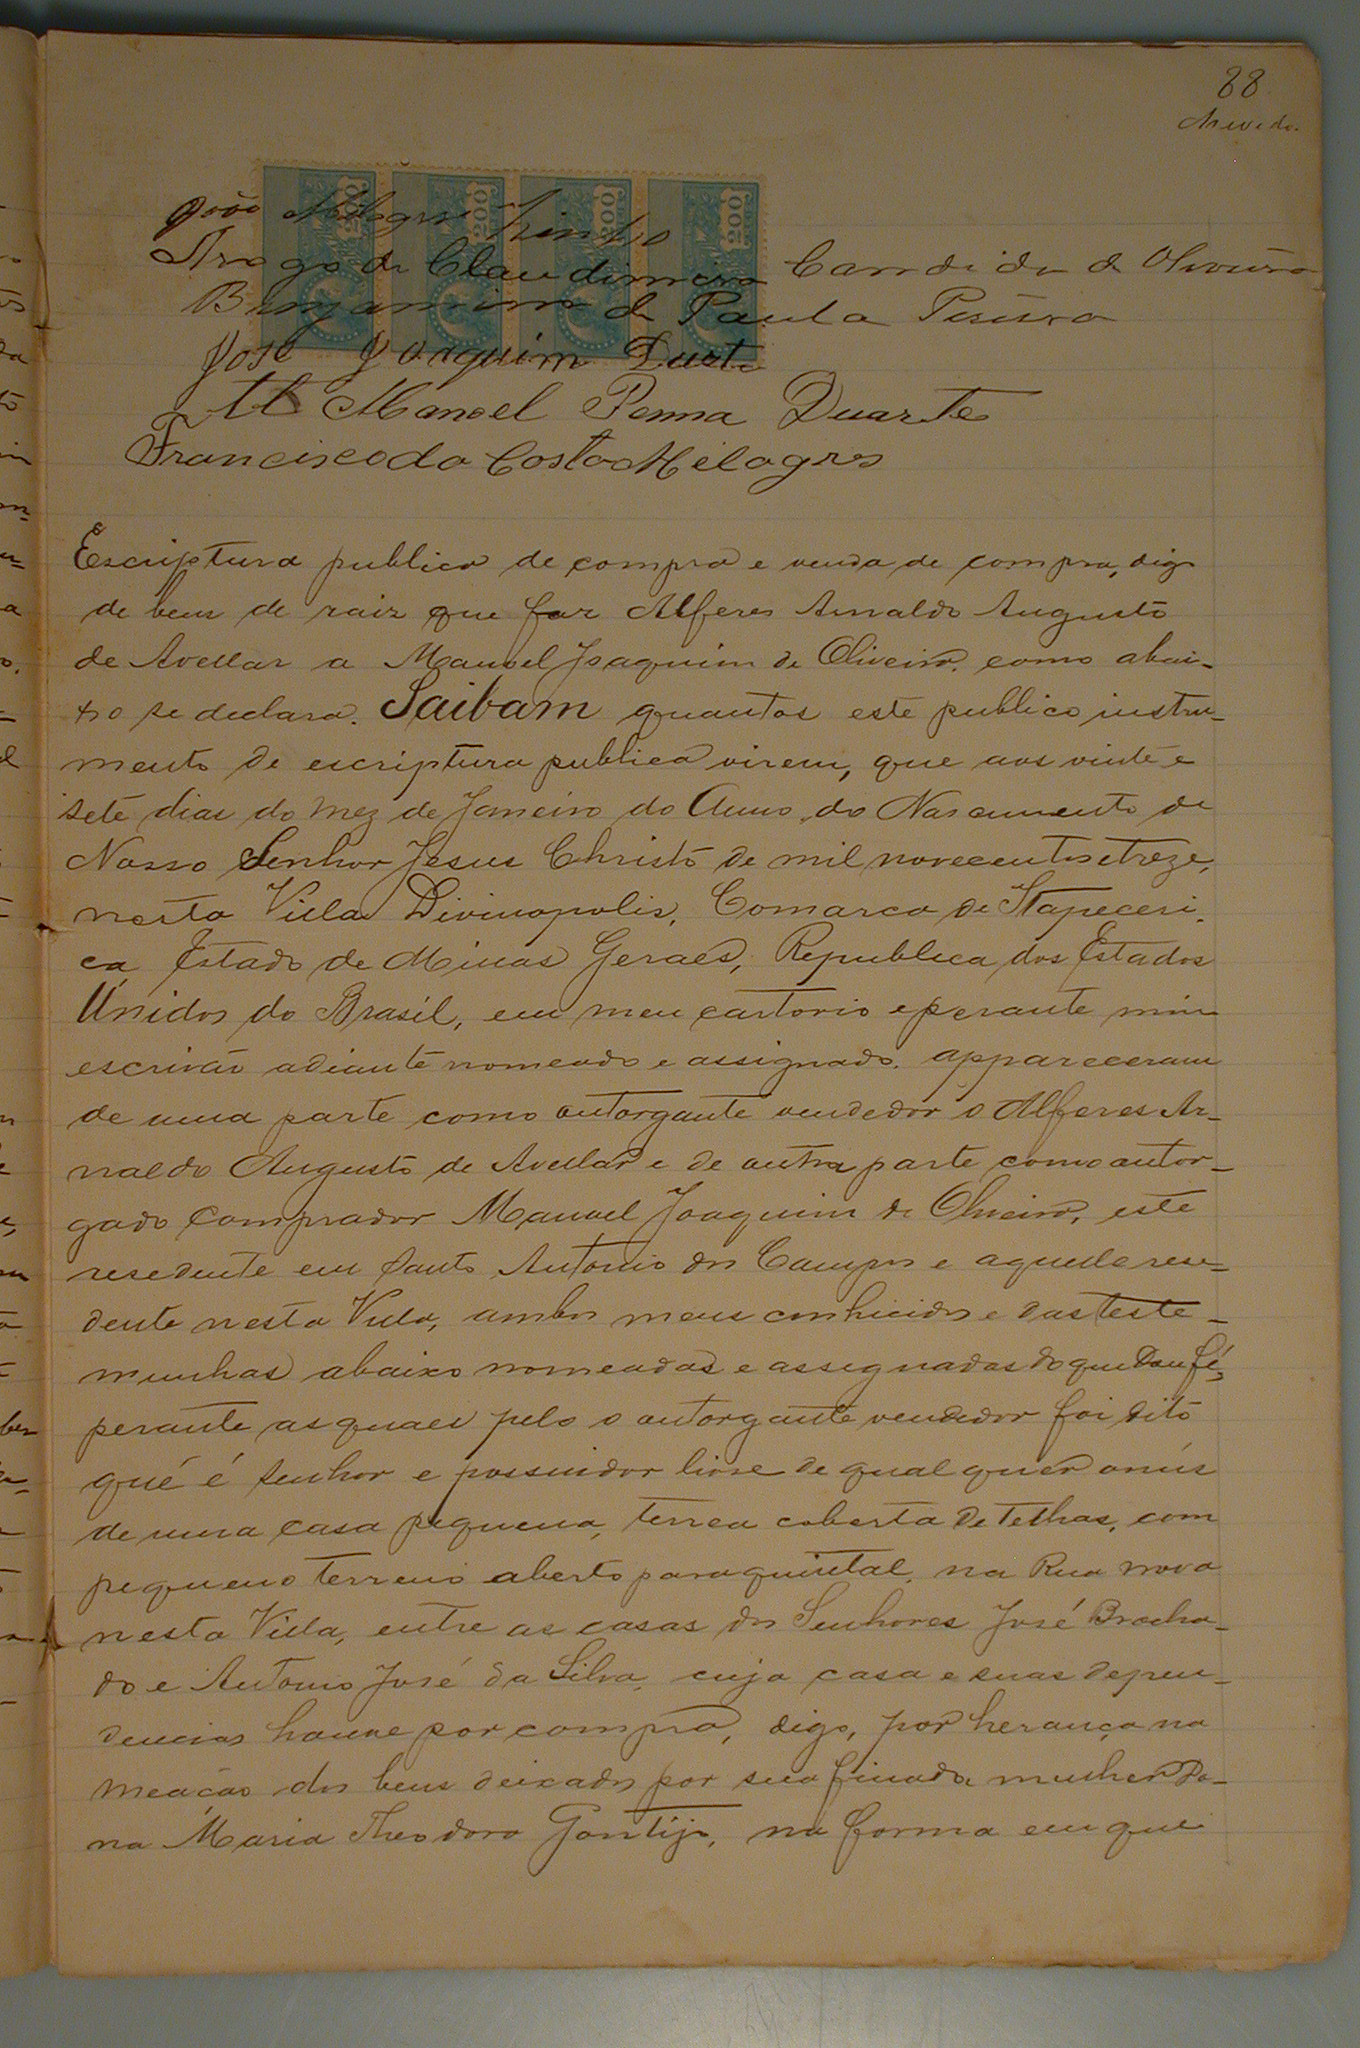 88
Azevedo.
200
200
200
200
João Milagre
Arogo de Claudimira Candida de Oliveira
Benjamim de Paula Pereira
José Joaquim Duarte
Manoel Penna Duarte
Francisco da Costa Milagres
Escriptura publica de compra e venda de compra, digo
de bens de raiz que faz Alferes Arnaldo Augusto
de Avellar a Manoel Joaquim de Oliveira, como abai-
xo se declara. Saibam quantos este publico instru-
mento de escriptura publica virem, que aos vinte e
sete dias do mez de Janeiro do Anno do Nascimento de
Nosso Senhor Jesus Christo de mil novecentos e treze,
nesta Villa Divinopolis, Comarca de Itapeceri-
ca, Estado de Minas Geraes, Republica dos Estados
Unidos do Brasil, em meu cartorio e perante mim
escrivão adiante nomeado e assignado. appareceram
de uma parte como outorgante vendedor o Alferes Ar-
naldo Augusto de Avellar e de outra parte como outor-
gado comprador Manoel Joaquim de Oliveira, este
resedente em Santo Antonio dos Campos e aquelle rese-
dente nesta Villa, ambos meus conhicidos e das teste-
munhas abaixo nomeadas e assegnadas do que Dou fé,
perante as quaes pelo o outorgante vendedor foi dito
que é senhor e possuidor livre de qualquer onus
de uma casa pequena, terrea coberta de telhas, com
pequeno terreno aberto para quintal, na Rua nova
nesta Villa, entre as casas dos Senhores José Bracha-
do e Antonio José da Silva, cuja casa e suas depen-
dencias houve por compra, digo, por herança na
meação dos bens deixados por sua finada mulher Do-
na Maria Theodora Gontijo, na forma em que